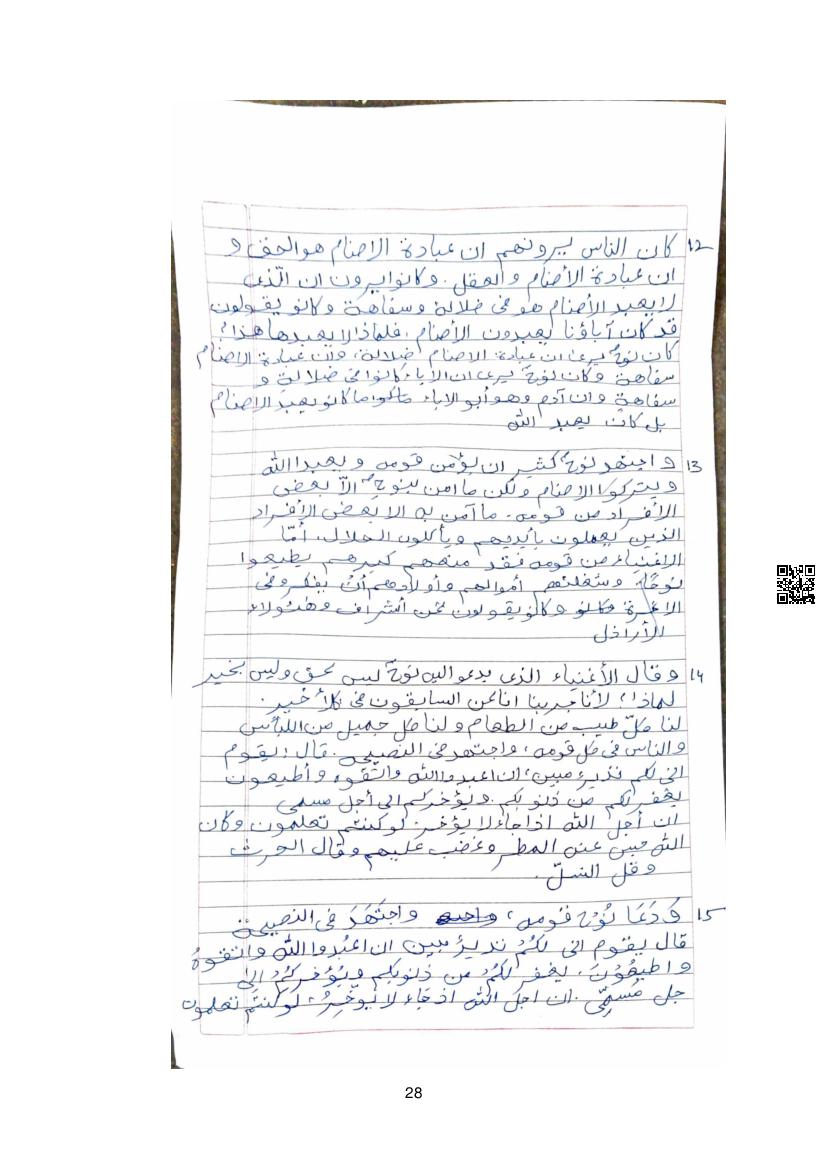 ١٢ كان الناس يرونهم ان عبادة الاصنام هو الحق و
ان عبادة الأصنام والعقل. وكانوا يرون ان الّذى
لا يعبد الأصنام هو فى ضلالة وسفاهة وكانو يقولون
قد كان آباؤنا يعبدون الأصنام، فلماذا لا يعبدها هذا؟
كان نوحٌ يرى ان عبادة الاصنام ضلالة، وان عبادة الاصنام
سفاهة وكان نوحٌ يرى ان الاباء كانوا فى ضلالة و
سفاهةٍ وان آدم وهو أبو الاباء ما كانو يعبد الاصنام
بل كان يعبد الله
١٣ و اجتهد نوحٌ كثير ان يؤمن قومه و يعبدا الله
ويتركوا الاصنام ولكن ما امن بنوحٍ الاّ بعض
الافراد من قومه. ما آمن به الا بعض الأفراد
الذين يعملون بأيديهم ويأكلون الحلال، أمّا
الاغنياء من قومه فقد منعهم كبرهم يطيعوا
نوحًا، وشغلتهم أموالهم وأولادهم أن يفكرو فى
الاخرة وكانو يقولون نحن أشراف وهئولاء
الأراذل
١٤ وقال الأغنياء الذى يدعو اليه نوحٌ ليس بحق وليس بخير
لماذا؟ لأنا جربنا اننا نحن السابقون فى كلأ خير.
لنا كلّ طيب من الطعام و لنا كل جميل من اللباس
والناس فى كل قومه، واجتهد فى النصيحة. قال: يقوم
انى لكم نذيرٌ مبين، ان اعبدوا الله واتقوه وأطيعون
يغفر لكم من ذنوبكم ويؤخركم الى أجل مسمى
ان أجل الله اذا جاء لا يؤخر لو كنتم تعلمون وكان
الله عنهم المطر وغضب عليهم وقال الحرث
وقل النسلّ.
١٥ وَدَعَا نُوْحٌ قومه، واجتَهَدَ فى النصيحة
قال يقوم انى لكُمْ نذيرٌ مبين ان اعبُدوا الله واتقوهُ
و اطيعُوْنَ، يغفر لكُمْ من ذنوبكم ويُؤخركُمْ الى
جل مُسمًّى. ان اجلَ الله اذ جاء لا يُؤخرُ، لو كنتم تعلمون
28